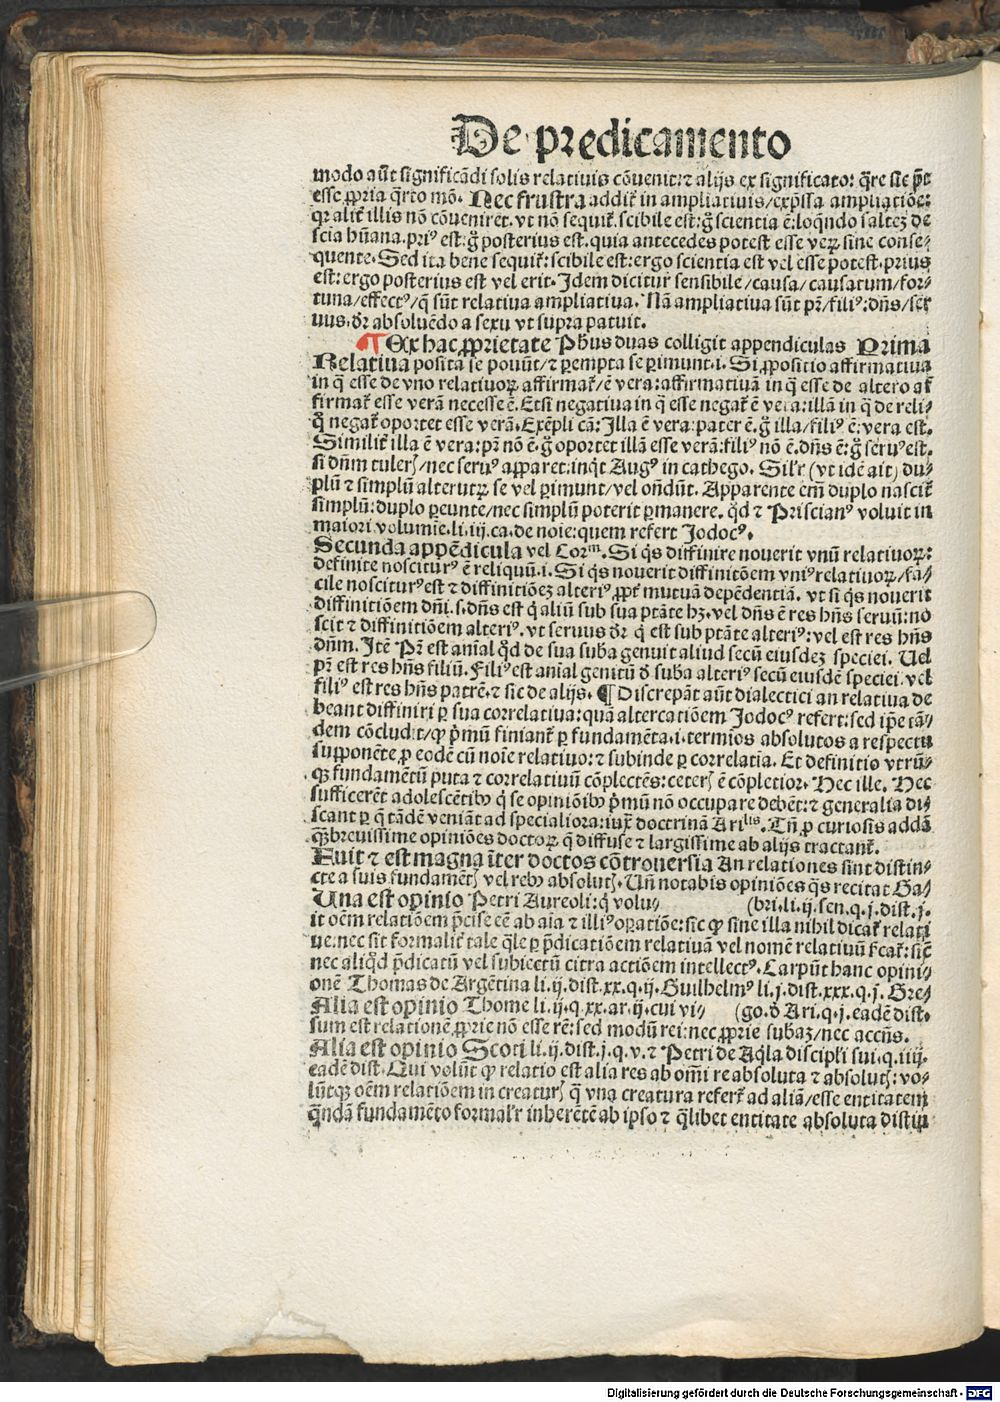 De predicamento
modo aūt significādi solis relativis cōvenit: ⁊ alijs ex significato: q̄re sic p̄t
esse ꝓpria q̄rto mō. Nec frustra addit̄ in ampliativis/exp̄ssa ampliatiōe:
qꝛ alit̄ illis nō cōveniret. vt nō sequit̄. scibile est: gͦ scientia ē: loqn̄do saltez de
scia hūana. priꝰ est: gͦ posterius est. quia antecedēs potest esse verū sine conse⸗
quente. Sed ita bene sequit̄: scibile est: ergo scientia est vel esse potest. prius
est: ergo posterius est vel erit. Idem dicitur sensibile/causa/causatum/for⸗
tuna/effectꝰ/q̄ sūt relativa ampliativa. Nā ampliativa sūt pr̄/filiꝰ: dn̄s/ser
vus. dr̄ absolvēdo a sexu vt supra patuit.
¶ Ex hac ꝓprietate Phūs duas colligit appendiculas Prima
Relativa posita se ponūt/⁊ ꝑempta se ꝑimunt. i. Si ꝓpositio affirmativa
in q̄ esse de vno relativoꝝ affirmat̄/ē vera: affirmativā in q̄ esse de altero af
firmat̄ esse verā necesse ē. Etsi negativa in q̄ esse negat̄ ē vera: illā in q̄ de reli⸗
q̊ negat̄ oportet esse verā. Exēpli cā: Illa ē vera: pater ē. gͦ illa/filiꝰ ē: vera est.
Similit̄ illa ē vera: pr̄ nō ē. gͦ oportet illā esse verā: filiꝰ nō ē. dn̄s ē: gͦ servꝰ est.
si dn̄m tuleꝝ/nec servꝰ apparet: inqt Augꝰ in cathego. Silr̄ (vt idē ait) du⸗
plū ⁊ simplū alterutꝝ se vel ꝑimunt/vel ondūt. Apparente em̄ duplo nascit̄
simplū: duplo ꝑeunte/nec simplū poterit ꝑmanere. qd̄ ⁊ Priscianꝰ voluit in
maiori volumie. li. iij. ca. de noie: quem refert Jodocꝰ.
Secunda appēdicula vel Corᵐ. Si q̄s diffinire noverit vnū relativoꝝ:
definite nosciturꝰ ē reliquū. i. Si q̄s noverit diffinitōem vniꝰ relativoꝝ/fa⸗
cile nosciturꝰ est ⁊ diffinitiōez alteriꝰ, ꝓpt̄ mutuā depēdentiā. vt si q̄s noverit
diffinitiōem dn̄i. s. dn̄s est q̄ aliū sub sua ptāte hꝫ. vel dn̄s ē res hn̄s servū: no
scit ⁊ diffinitiōem alteriꝰ. vt servus dr̄ q̄ est sub ptāte alteriꝰ: vel est res hn̄s
dn̄m. Itē Pr̄ est anīal qd̄ de sua suba genuit aliud secū eiusdez speciei. Vel
pr̄ est res hn̄s filiū. Filiꝰ est anīal genitū d̄ suba alteriꝰ secū eiusdē speciei. vel
filiꝰ est res hn̄s patrē. ⁊ sic de alijs. ¶ Discrepāt aūt dialectici an relativa de
beant diffiniri ꝑ sua correlativa: quā altercatiōem Jodocꝰ refert: sed ip̄e tā⸗
dem cōcludit/ꝙ p̄mū finiant̄ ꝑ fundamēta. i. termīos absolutos a respectu
supponēte ꝓ eodē cū noīe relativo: ⁊ subinde ꝑ correlatīa. Et definitio vtrū⸗
qꝫ fundamētū puta ⁊ correlativū cōplectēs: ceteꝝ ē cōpletior. Hec ille. Hec
sufficerēt adolescētibꝰ q̄ se opiniōibꝰ p̄mū nō occupare debēt: ⁊ generalia di⸗
scant ꝑ q̄ tādē veniāt ad specialiora: iux̄ doctrinā Ariˡⁱˢ. Tn̄ ꝓ curiosis addā
qꝫbrevissime opiniōes doctoꝝ q̄ diffuse ⁊ largissime ab alijs tractant̄.
Fuit ⁊ est magna īter doctos cōtroversia An relationes sint distin⸗
cte a suis fundamētꝭ vel rebꝰ absolutꝭ. Un̄ notabis opiniōes q̄s recitat Ga⸗
Una est opinio Petri Aureoli: q̄ volu⸗ (bri. li. ij. sen. q. j. dist. j.
it oēm relatiōem p̄cise eē ab aīa ⁊ illiꝰ oꝑatiōe: sic ꝙ sine illa nihil dicat̄ relati
ve: nec sit formalit̄ tale q̄le ꝑ p̄dicatiōem relativā vel nomē relativū fcat̄: sic̄
nec aliqd̄ p̄dicatū vel subiectū citra actiōem intellectꝰ. Carpūt hanc opini⸗
onē Thomas de Argētina li. ij. dist. xx. q. ij. Guilhelmꝰ li. j. dist. xxx. q. j. Gre⸗
Alia est opinio Thome li. ij. q. xx. ar. ij. cui vi⸗ (go. d̄ Ari. q. j. eadē dist.
sum est relationē ꝓprie nō esse rē: sed modū rei: nec ꝓprie subaz/nec accn̄s.
Alia est opinio Scoti li. ij. dist. j. q. v. ⁊ Petri de Aqla discipli sui. q. iiij.
eadē dist. Qui volūt ꝙ relatio est alia res ab omī re absoluta ⁊ absolutꝭ: vo⸗
lūtqꝫ oēm relatiōem in creaturꝭ q̄ vna creatura refert̄ ad aliā/esse entitatem
q̄ndā fundamēto formalr̄ inherētē ab ipso ⁊ q̄libet entitate absoluta distin
Digitalisierung gefördert durch die Deutsche Forschungsgemeinschaft - DFG